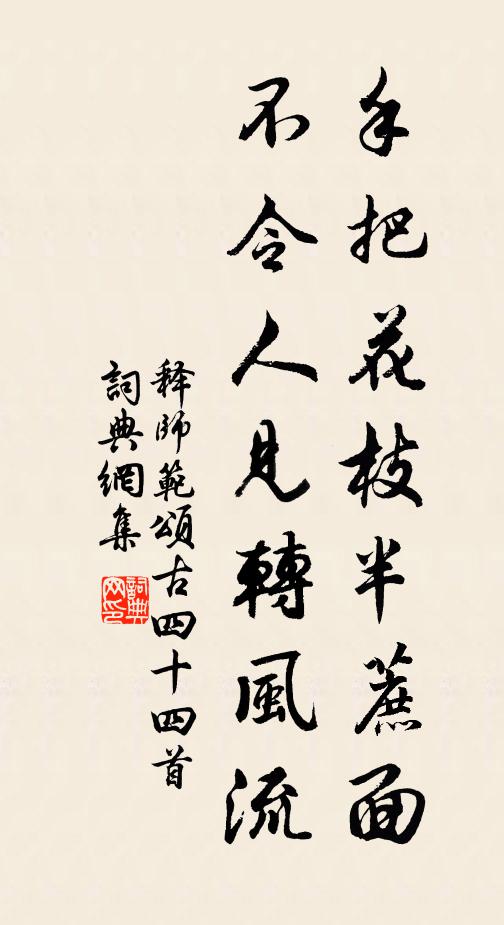 手把花枝半蔗面
不令人見轉風流
释師範頌古四十四首
詞典網集
詞典网印